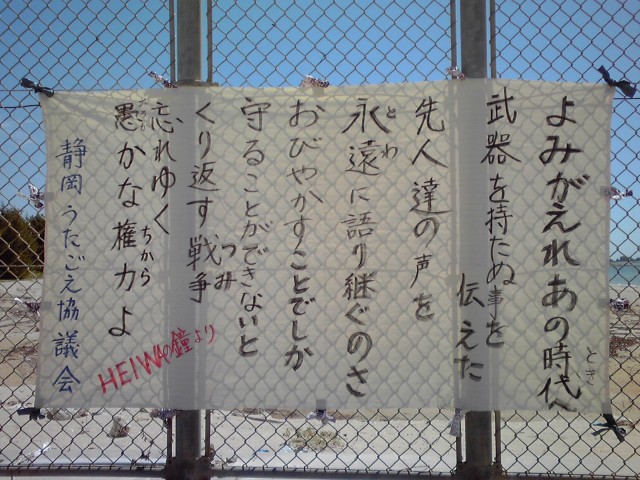 よみがえれあの時代へ
とき
武器を持たぬ事を伝えた
先人達の声を
永遠に語り継ぐのさ
とわ
おびやかすことでしか
守ることができないと
くり返す戦争
つみ
忘れゆく
愚かな権力よ
ちから
HEIWAの鐘より
静岡うたごえ協議会